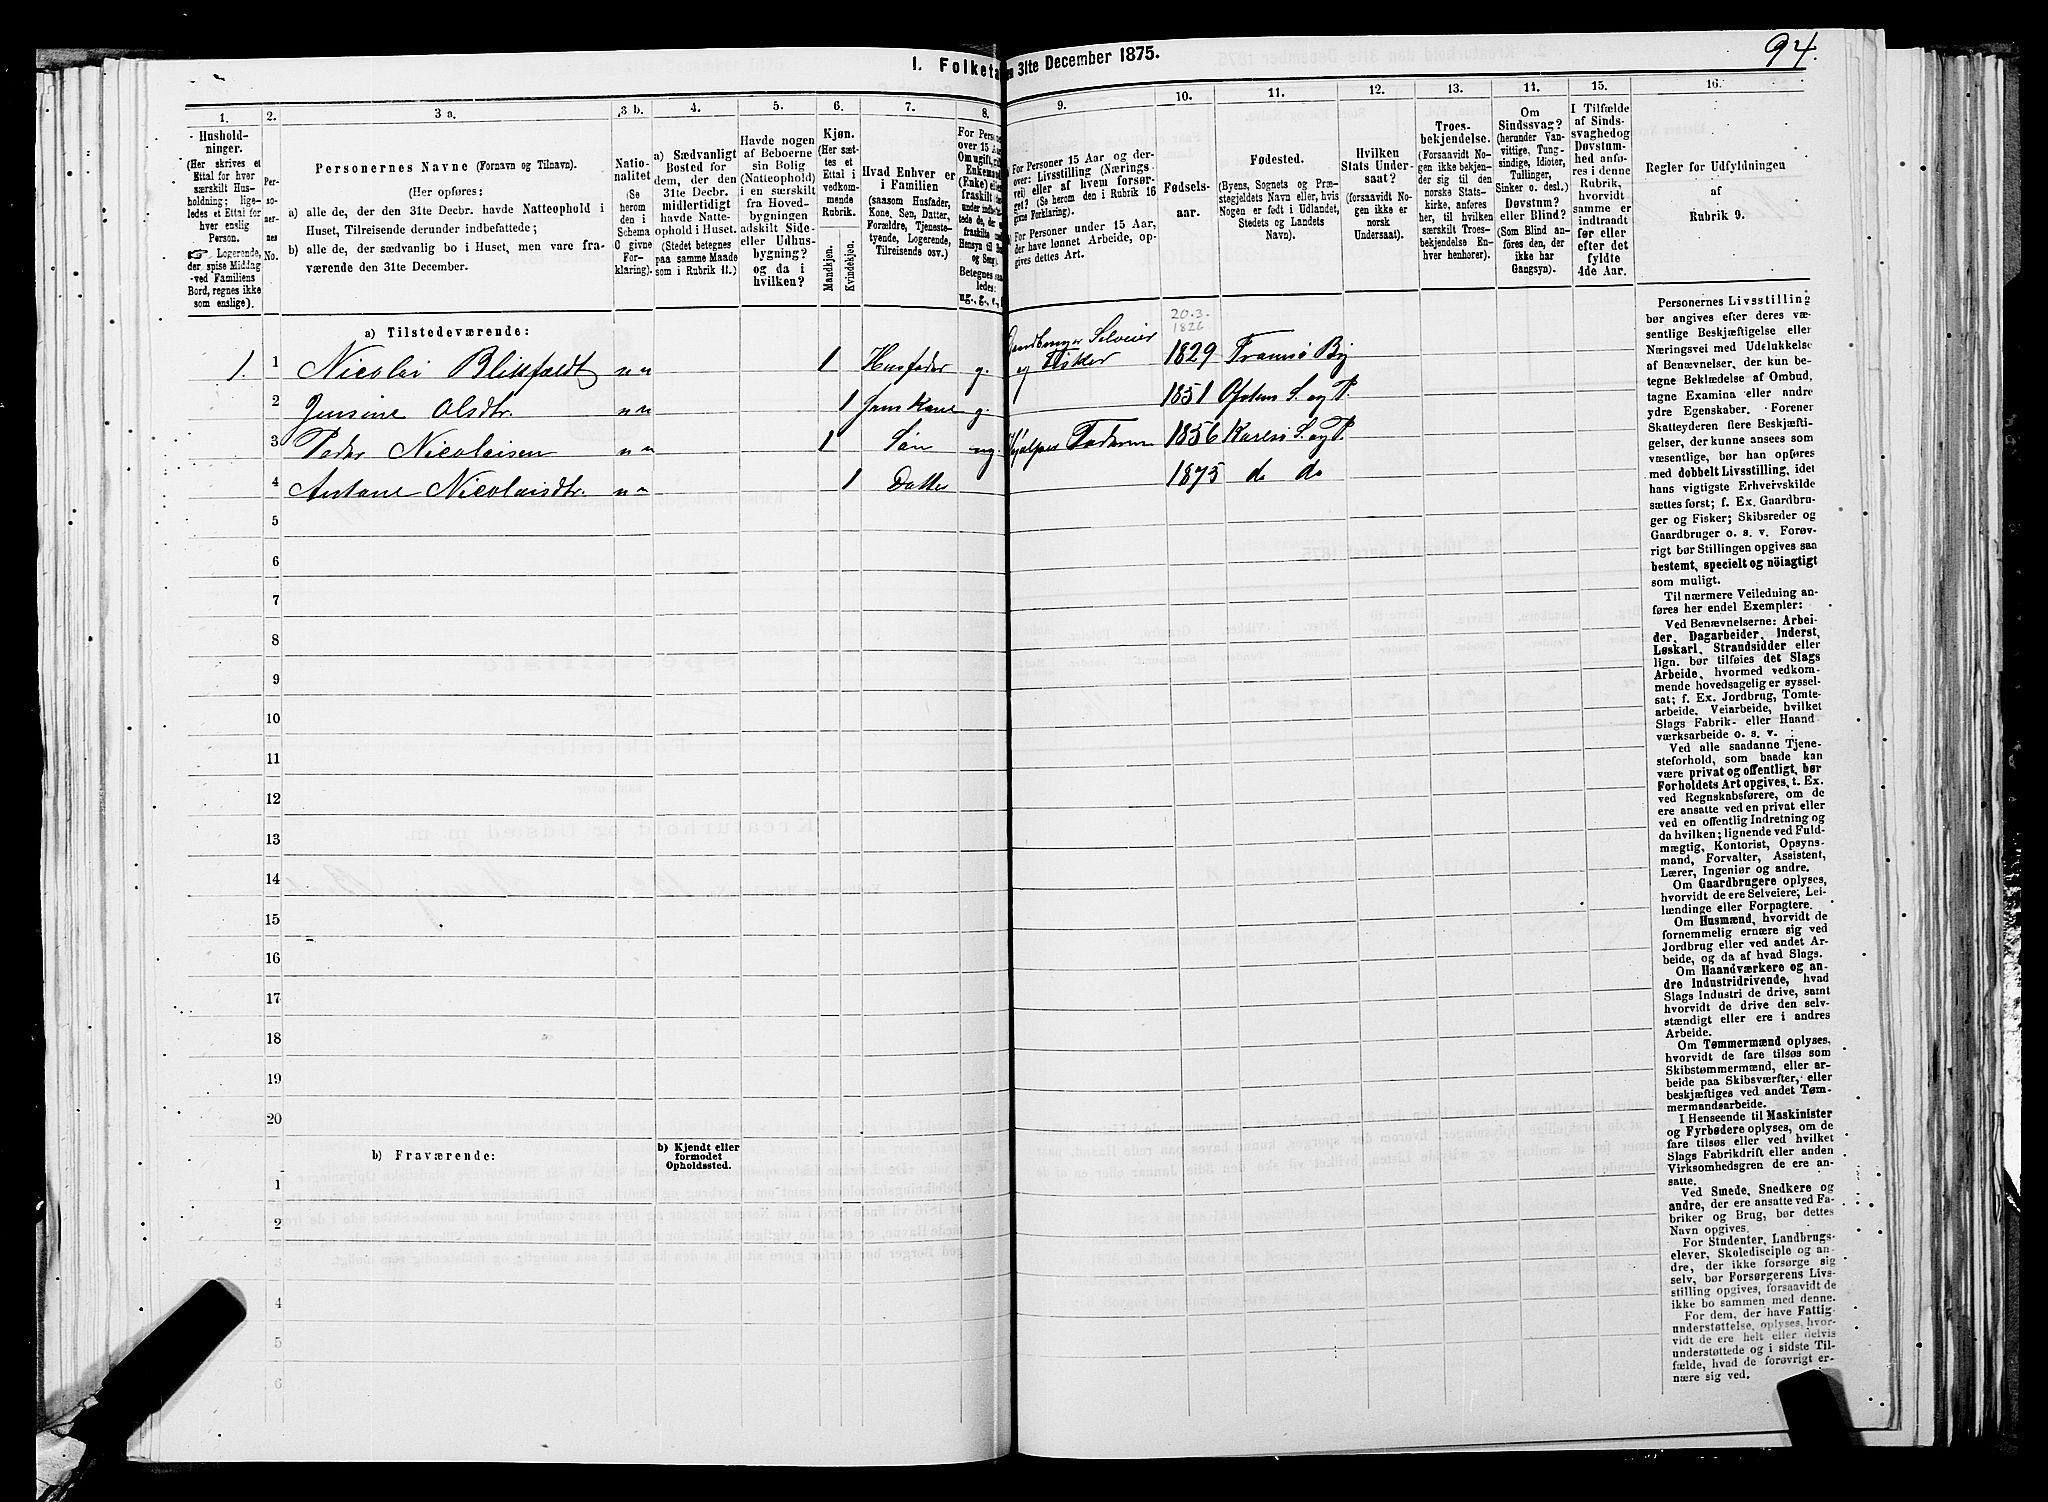 94.
I. Folketa
n 31te December 1875.
1.
2.
3 a.
3 b.
4.
5.
6.
7.
8.
9.
10.
11.
12.
13.
14.
15.
16.
Hushold-
ninger.
(Her skrives et
Ettal for hver
særskilt Hus-
holdning; lige-
ledes et Ettal for
hver enslig
Person.
☞ Logerende,
der spise Middag
ved Familiens
Bord, regnes ikke
som enslige).
Per-
so-
ner-
nes
No.
Personernes Navne (Fornavn og Tilnavn).
(Her opføres:
a) alle de, der den 31te Decbr. havde Natteophold i
Huset, Tilreisende derunder indbefattede;
b) alle de, der sædvanlig bo i Huset, men vare fra-
værende den 31te December.
Natio-
nalitet
(Se
herom
den i
Schema
C givne
For-
klaring).
a) Sædvanligt
Bosted for
dem, der den
31te Decbr.
midlertidigt
havde Natte-
ophold i Huset.
(Stedet betegnes
paa samme Maade
som i Rubrik 11.)
Havde nogen
af Beboerne
sin Bolig
(Natteophold)
i en særskilt
fra Hoved-
bygningen
adskilt Side-
eller Udhus-
bygning?
og da i
hvilken?
Kjøn.
(Her sæt-
tes et
Ettal i
vedkom-
mende
Rubrik.
Mandkjøn.
Kvindekjøn.
Hvad Enhver er
i Familien
(saasom Husfader,
Kone, Søn, Datter,
Forældre, Tjeneste-
tyende, Logerende,
Tilreisende osv.)
For Personer 15 Aar og der-
over: Livsstilling (Nærings-
vei) eller af hvem forsør-
get? (Se herom den i Rubrik 16
givne Forklaring).
For Personer under 15 Aar,
der have lønnet Arbeide, op-
gives dettes Art.
Fødsels-
aar.
Fødested.
(Byens, Sognets og Præ-
stegjeldets Navn eller, hvis
Nogen er født i Udlandet,
Stedets og Landets
Navn).
Hvilken
Stats Under-
saat?
(forsaavidt No-
gen ikke er
norsk
Undersaat).
Troes-
bekjendelse.
(Forsaavidt No-
gen ikke bekjen-
der sig til den
norske Stats-
kirke, anføres
her, til hvilken
særskilt Troes-
bekjendelse En-
hver henhører).
Om
Sindssvag?
(herunder Van-
vittige, Tung-
sindige, Idioter,
Tullinger,
Sinker o. desl.)
Døvstum?
eller Blind?
(Som Blind an-
føres den, der
ikke har
Gangsyn).
I Tilfælde
af Sinds-
svaghed og
Døvstum-
hed anfø-
res i denne
Rubrik,
hvorvidt
samme er
indtraadt
før eller
efter det
fyldte
4de Aar.
Regler for Udfyldningen
af
Rubrik 9.
a) Tilstedeværende:
20.3.
1826
1. 1 Nicolai Blixfeldt n n 1 Husfader g. Selveier
og Fisker 1829 Tromsø By
2 Jensine Olsdtr. n n 1 hans Kone g. 1851 Ofoten S. og P.
3 Peder Nicolaisen n n 1 Søn ug. Hjælper Faderen 1856 Karlsø S. og P.
4 Antone Nicolaisdtr. n n 1 Datter 1875 do do
5
6
7
8
9
10
11
12
13
14
15
16
17
18
19
20
b) Fraværende:
b) Kjendt eller
formodet
Opholdssted.
1
2
3
4
5
6
Personernes Livsstilling
bør angives efter deres væ-
sentlige Beskjæftigelse eller
Næringsvei med Udelukkelse
af Benævnelser, der kun be-
tegne Beklædelse af Ombud,
tagne Examina eller andre
ydre Egenskaber. Forener
Skatteyderen flere Beskjæfti-
gelser, der kunne ansees som
væsentlige, bør han opføres
med dobbelt Livsstilling, idet
hans vigtigste Erhvervskilde
sættes først; f. Ex. Gaardbru-
ger og Fisker; Skibsreder og
Gaardbruger o. s. v. Forøv-
rigt bør Stillingen opgives saa
bestemt, specielt og nöiagtigt
som muligt.
Til nærmere Veiledning an-
føres her endel Exempler:
Ved Benævnelserne: Arbei-
der, Dagarbeider, Inderst,
Løskarl, Strandsidder eller
lign. bør tilføies det Slags
Arbeide, hvormed vedkom-
mende hovedsagelig er syssel-
sat; f. Ex. Jordbrug, Tomte-
arbeide, Veiarbeide, hvilket
Slags Fabrik- eller Haand-
værksarbeide o. s. v.
Ved alle saadanne Tjene-
steforhold, som baade kan
være privat og offentligt, bør
Forholdets Art opgives, t. Ex.
ved Regnskabsførere, om de
ere ansatte ved en privat eller
ved en offentlig Indretning og
da hvilken; lignende ved Fuld-
mægtig, Kontorist, Opsyns-
mand, Forvalter, Assistent,
Lærer, Ingeniør og andre.
Om Gaardbrugere oplyses,
hvorvidt de ere Selveiere, Lei-
lændinge eller Forpagtere.
Om Husmænd, hvorvidt de
fornemmelig ernære sig ved
Jordbrug eller ved andet Ar-
beide, og da af hvad Slags.
Om Haandværkere og an-
dre Industridrivende, hvad
Slags Industri de drive, samt
hvorvidt de drive den selv-
stændigt eller ere i andres
Arbeide.
Om Tømmermænd oplyses,
hvorvidt de fare tilsøs som
Skibstømmermænd, eller ar-
beide paa Skibsværfter, eller
beskjæftiges ved andet Tøm-
mermandsarbeide.
I Henseende til Maskinister
og Fyrbødere oplyses, om de
fare tilsøs eller ved hvilket
Slags Fabrikdrift eller anden
Virksomhedsgren de ere an-
satte.
Ved Smede, Snedkere og
andre, der ere ansatte ved Fa-
briker og Brug, bør dettes
Navn opgives.
For Studenter, Landbrugs-
elever, Skoledisciple og an-
dre, der ikke forsørge sig
selv, bør Forsørgerens Livs-
stilling opgives, forsaavidt de
ikke bo sammen med denne.
For dem, der have Fattig-
understøttelse, oplyses, hvor-
vidt de ere helt eller delvis
understøttede og i sidste Til-
fælde, hvad de forøvrigt er-
nære sig ved.